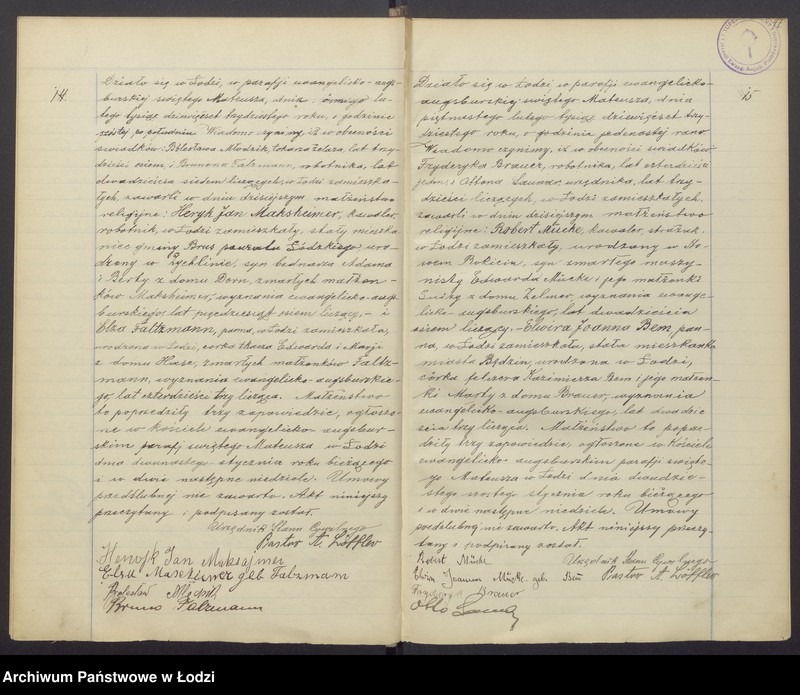 14.
Działo się w Łodzi, w parafji ewangelicko-augs-
burskiej świętego Mateusza, dnia ósmego lu-
tego tysiąc dziewięćset trzydziestego roku, o godzinie
szóstej po południu. Wiadomo czynimy, iż w obecności
świadków: Bolesława Młodzik, tokarza żelaza, lat trzy-
dzieści osiem, i Brunona Falzmann, robotnika, lat
dwadzieścia siedem liczących, w Łodzi zamieszka-
łych, zawarli w dniu dzisiejszym małżeństwo
religijne: Henryk Jan Maksheimer, kawaler,
robotnik, w Łodzi zamieszkały, stały mieszka-
niec gminy Brus powiatu Łódzkiego, uro-
dzony w Żychlinie, syn bednarza Adama
i Berty z domu Dorn, zmarłych małżon-
ków Maksheimer, wyznania ewangelicko-augs-
burskiego, lat pięćdziesiąt osiem liczący, - i
Elza Faltzmann, panna, w Łodzi zamieszkała,
urodzona w Łodzi, córka tkacza Edwarda i Marji
z domu Hase, zmarłych małżonków Faltz-
mann, wyznania ewangelicko-augsburskie-
go, lat czterdzieści trzy licząca. Małżeństwo
to poprzedziły trzy zapowiedzie, ogłoszo-
ne w kościele ewangelicko-augsbur-
skim parafji świętego Mateusza w Łodzi
dnia dwunastego stycznia roku bieżącego
i w dwie następne niedziele. Umowy
przedślubnej nie zawarto. Akt niniejszy
przeczytany i podpisany został.
Urzędnik Stanu Cywilnego
Pastor A. Löffler
Henryk Jan Maksajmer
Elza Maksheimer geb Falzmann
Bolesław Młodzik
Bruno Falzmann
15
Działo się w Łodzi w parafji ewangelicko-
augsburskiej świętego Mateusza, dnia
piętnastego lutego tysiąc dziewięćset trzy-
dziestego roku, o godzinie jedenastej rano.
Wiadomo czynimy, iż w obecności świadków
Fryderyka Brauer, robotnika, lat czterdzieści
jeden i Ottona urzędnika, lat trzy-
dzieści liczących, w Łodzi zamieszkałych,
zawarli w dniu dzisiejszym małżeństwo
religijne: Robert Mücke, kawaler, strażak,
w Łodzi zamieszkały, urodzony w No-
wem Rokiciu, syn zmarłego maszy-
nisty Edwarda Mücke i jego małżonki
z domu Zelmer, wyznania ewange-
licko-augsburskiego, lat dwadzieścia
osiem liczący. - Elwira Joanna Bem, pan-
na, w Łodzi zamieszkała, stała mieszkanka
miasta Będzin, urodzona w Łodzi,
córka felczera Kazimierza Bem i jego małżon-
ki Marty z domu Brauer, wyznania
ewangelicko-augsburskiego, lat dwadzie-
ścia trzy licząca. Małżeństwo to poprze-
dziły trzy zapowiedzie, ogłoszone w kościele
ewangelicko-augsburskim parafji święte-
go Mateusza w Łodzi dnia dwudzie-
stego szóstego stycznia roku bieżącego
i w dwie następne niedziele. Umowy
przedślubnej nie zawarto. Akt niniejszy przeczy-
tany i podpisany został.
Urzędnik Stanu Cywilnego
Pastor A. Löffler
Robert Mücke
Elwira Joanna Mücke geb. Bem
Fryderyk Brauer
Otto
Archiwum Państwowe w Łodzi